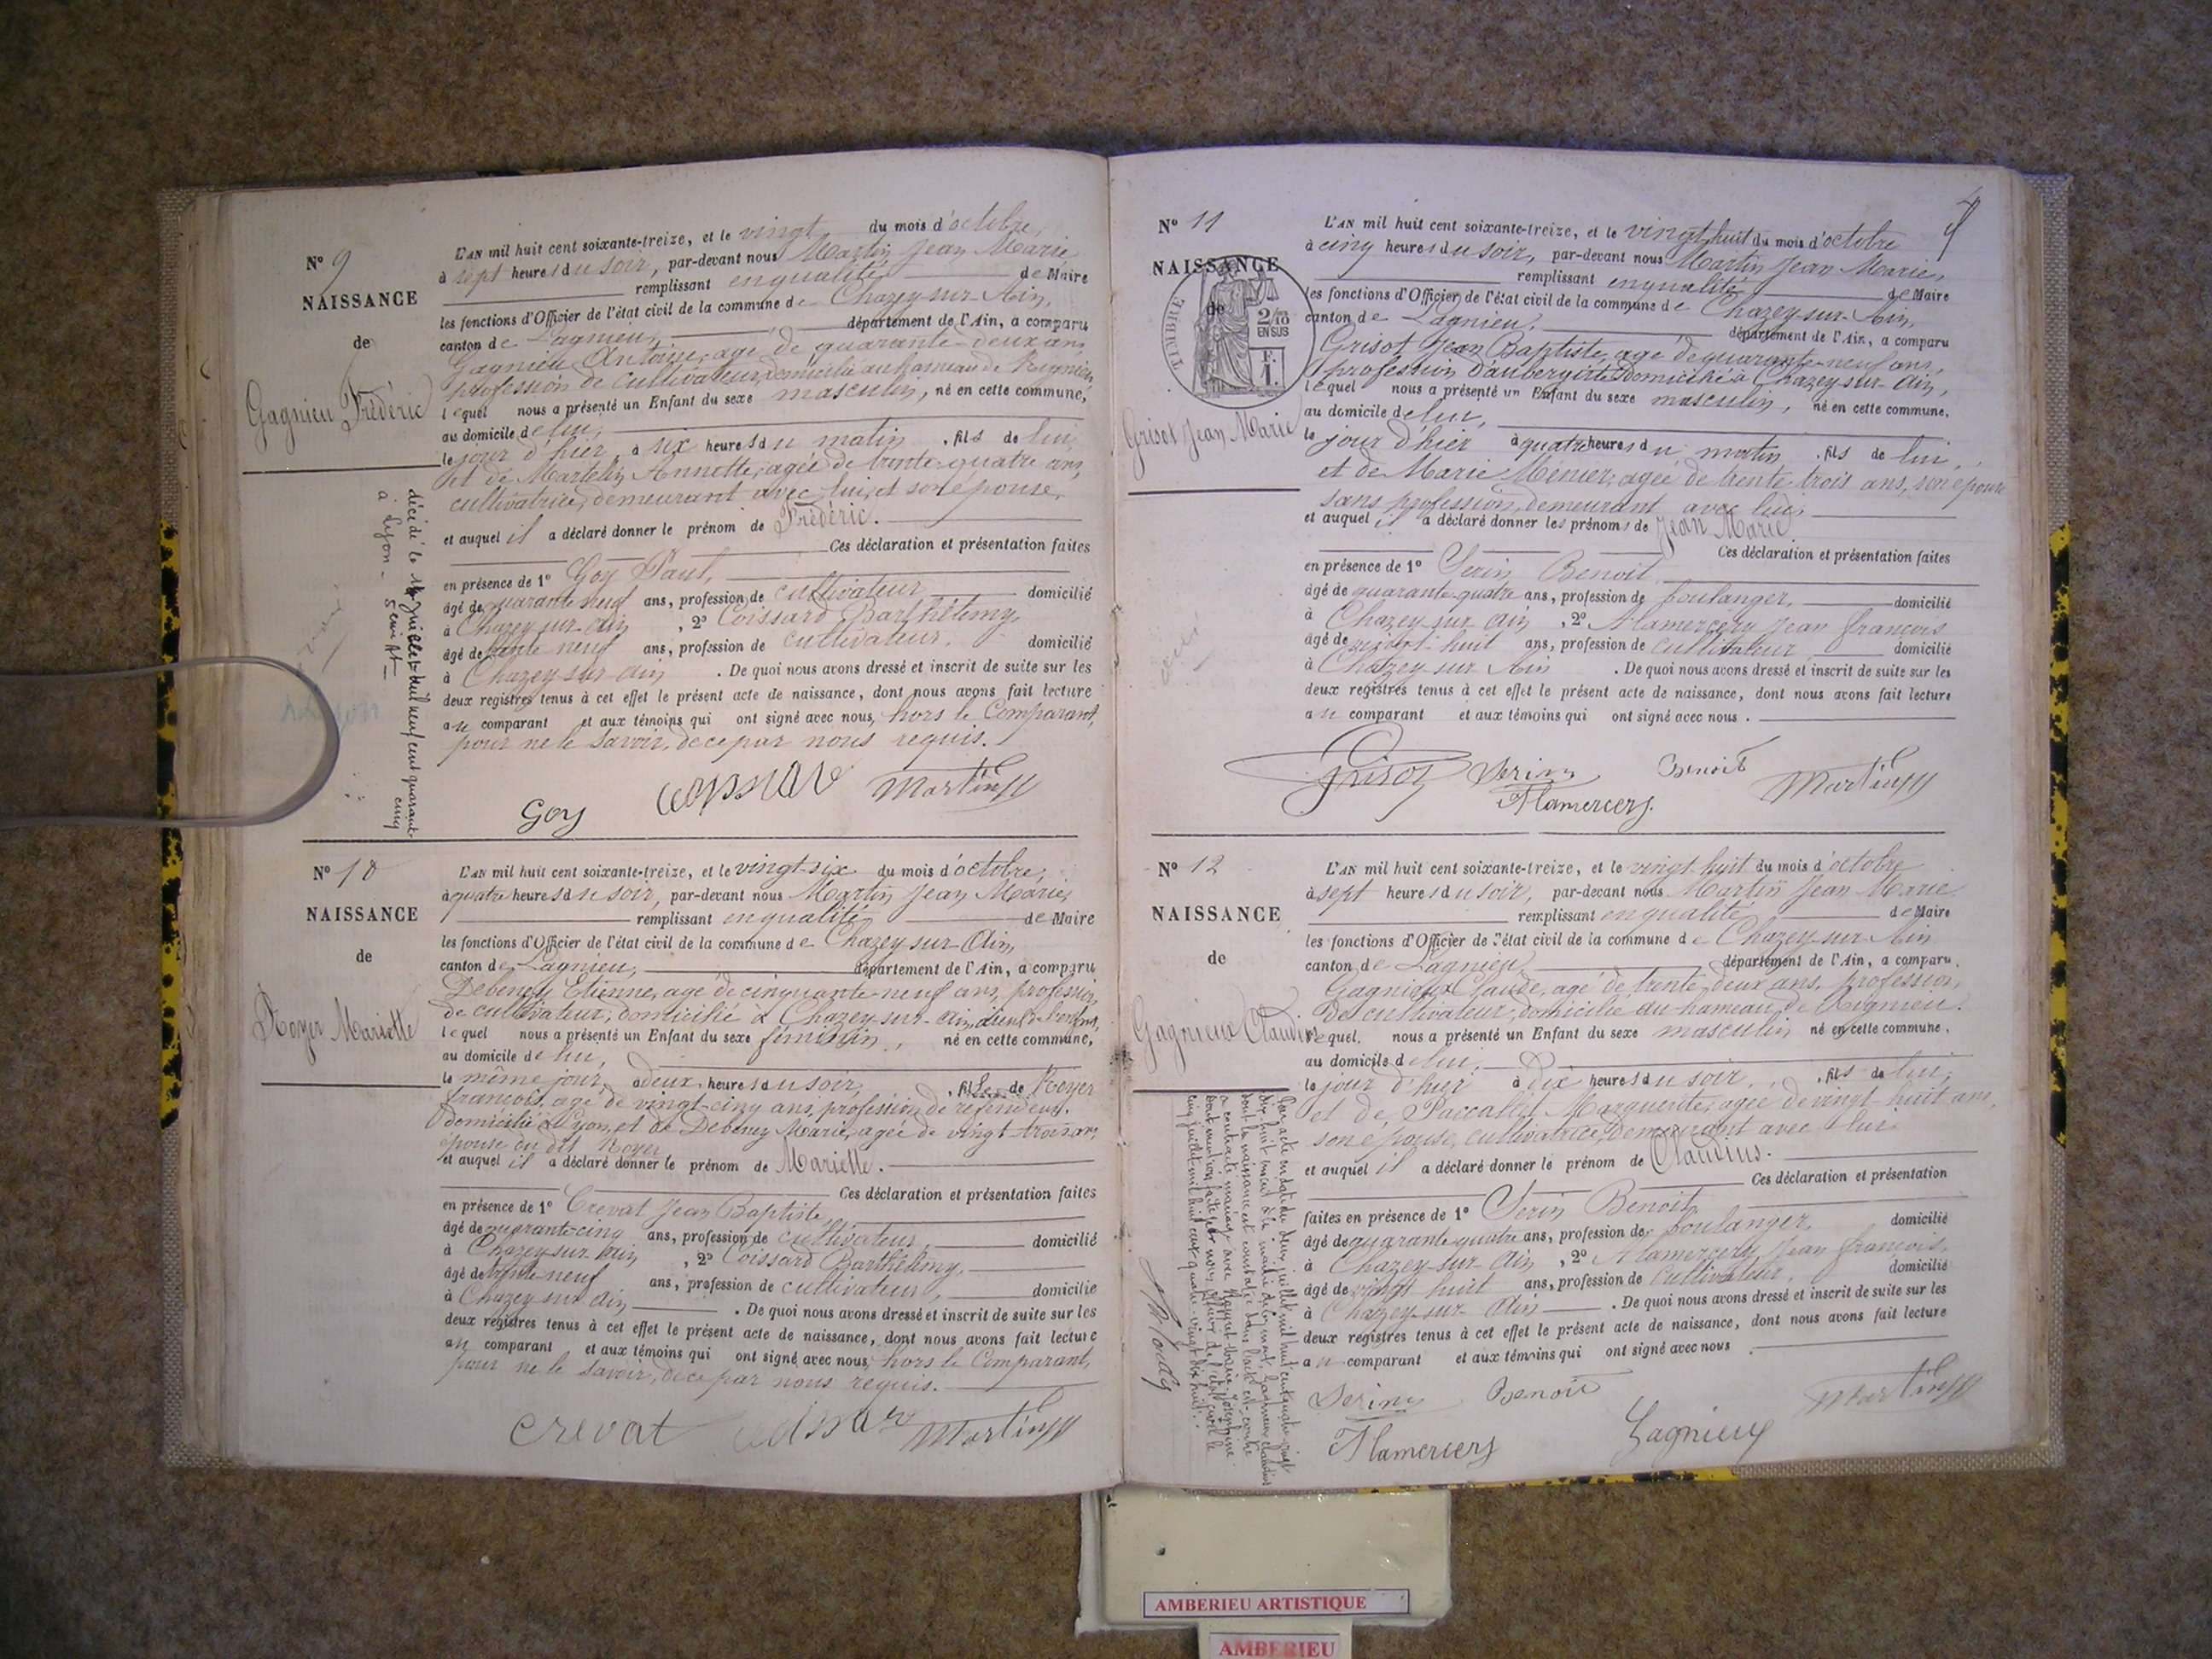 N° 9
NAISSANCE
de
Gagnieu Frédéric
décédé le 14 juillet mil neuf cent quarante
cinq
à Lyon - 5eme Art -
L'AN mil huit cent soixante-treize, et le vingt du mois d'octobre,
à sept heures du soir, par-devant nous Martin Jean Marie
remplissant en qualité de Maire
les fonctions d'Officier de l'état civil de la commune de Chazey-sur-Ain,
canton de Lagnieu, département de l'Ain, a comparu
Gagnieu Antoine, agé de quarante-deux ans,
profession de Cultivateur, domicilié au hameau de Rignieu,
lequel nous a présenté un Enfant du sexe masculin, né en cette commune,
au domicile de lui,
le jour d'hier, à six heures du matin, fils de lui,
et de Martelin Annette, agée de trente-quatre ans,
cultivatrice, demeurant avec lui, et son épouse,
et auquel il a déclaré donner le prénom de Frédéric.
Ces déclaration et présentation faites
en présence de 1° Goy Paul,
âgé de quarante neuf ans, profession de cultivateur domicilié
à Chazey sur-Ain, 2° Coissard Barthélemy,
âgé de trente neuf ans, profession de cultivateur, domicilié
à Chazey-sur-Ain. De quoi nous avons dressé et inscrit de suite sur les
deux registres tenus à cet effet le présent acte de naissance, dont nous avons fait lecture
au comparant et aux témoins qui ont signé avec nous, hors le Comparant,
pour ne le savoir, de ce par nous requis.
Goy Martin
N° 10
NAISSANCE
de
Royer Mariette
L'AN mil huit cent soixante-treize, et le vingt-six du mois d'octobre,
à quatre heures du soir, par-devant nous Martin Jean Marie,
remplissant en qualité de Maire
les fonctions d'Officier de l'état civil de la commune de Chazey-sur-Ain,
canton de Lagnieu, département de l'Ain, a comparu
Debeney Etienne, agé de cinquante-neuf ans, profession
de cultivateur, domicilié à Chazey-sur-Ain,
lequel nous a présenté un Enfant du sexe féminin, né en cette commune,
au domicile de lui,
le même jour, à deux heures du soir, fille de Royer
françois, agé de vingt-cinq ans, profession de refendeur,
domicilié à Lyon, et de Debeney Marie, agée de vingt-trois ans,
épouse du dit Royer
et auquel il a déclaré donner le prénom de Mariette.
Ces déclaration et présentation faites
en présence de 1° Crevat Jean Baptiste,
âgé de quarante-cinq ans, profession de cultivateur, domicilié
à Chazey sur Ain, 2° Coissard Barthélemy,
âgé de trente-neuf ans, profession de cultivateur, domicilié
à Chazey sur Ain. De quoi nous avons dressé et inscrit de suite sur les
deux registres tenus à cet effet le présent acte de naissance, dont nous avons fait lecture
au comparant et aux témoins qui ont signé avec nous, hors le Comparant,
pour ne le savoir, de ce par nous requis.
Crevat Martin
N° 11
NAISSANCE
de
TIMBRE
2/10
EN SUS
Grisot Jean Marie
L'AN mil huit cent soixante-treize, et le vingt huit du mois d'octobre
à cinq heures du soir, par-devant nous Martin Jean Marie,
remplissant en qualité de Maire
les fonctions d'Officier de l'état civil de la commune de Chazey-sur-Ain,
canton de Lagnieu, département de l'Ain, a comparu
Grisot Jean Baptiste, agé de quarante-neuf ans,
profession d'aubergiste, domicilié à Chazey-sur-Ain,
lequel nous a présenté un Enfant du sexe masculin, né en cette commune,
au domicile de lui,
le jour d'hier à quatre heures du matin, fils de lui,
et de Marie Menier, agée de trente trois ans, son épouse
sans profession, demeurant avec lui,
et auquel il a déclaré donner les prénoms de Jean Marie
Ces déclaration et présentation faites
en présence de 1° Serin Benoit
âgé de quarante-quatre ans, profession de boulanger, domicilié
à Chazey sur Ain, 2° Flamercery Jean françois
âgé de vingt huit ans, profession de cultivateur domicilié
à Chazey sur Ain. De quoi nous avons dressé et inscrit de suite sur les
deux registres tenus à cet effet le présent acte de naissance, dont nous avons fait lecture
au comparant et aux témoins qui ont signé avec nous.
Grisot Serin Benoit Martin
Flamercery
N° 12
NAISSANCE
de
Gagnieux Claudius
L'AN mil huit cent soixante-treize, et le vingt huit du mois d'octobre
à sept heures du soir, par-devant nous Martin Jean Marie
remplissant en qualité de Maire
les fonctions d'Officier de l'état civil de la commune de Chazey-sur-Ain
canton de Lagnieu, département de l'Ain, a comparu
Gagnieux Claude, agé de trente-deux ans, profession
de cultivateur, domicilié au hameau de Rignieu,
lequel nous a présenté un Enfant du sexe masculin, né en cette commune,
au domicile de lui,
le jour d'hier à dix heures du soir, fils de lui,
et de Paccallet Marguerite, agée de vingt-huit ans,
son épouse, cultivatrice, demeurant avec lui
et auquel il a déclaré donner le prénom de Claudius.
Ces déclaration et présentation
faites en présence de 1° Serin Benoit,
âgé de quarante quatre ans, profession de boulanger, domicilié
à Chazey-sur-Ain, 2° Flamercery Jean françois,
âgé de vingt huit ans, profession de cultivateur, domicilié
à Chazey-sur-Ain. De quoi nous avons dressé et inscrit de suite sur les
deux registres tenus à cet effet le présent acte de naissance, dont nous avons fait lecture
au comparant et aux témoins qui ont signé avec nous
Serin Benoit Martin
Flamercery Gagnieux
AMBERIEU ARTISTIQUE
AMBERIEU